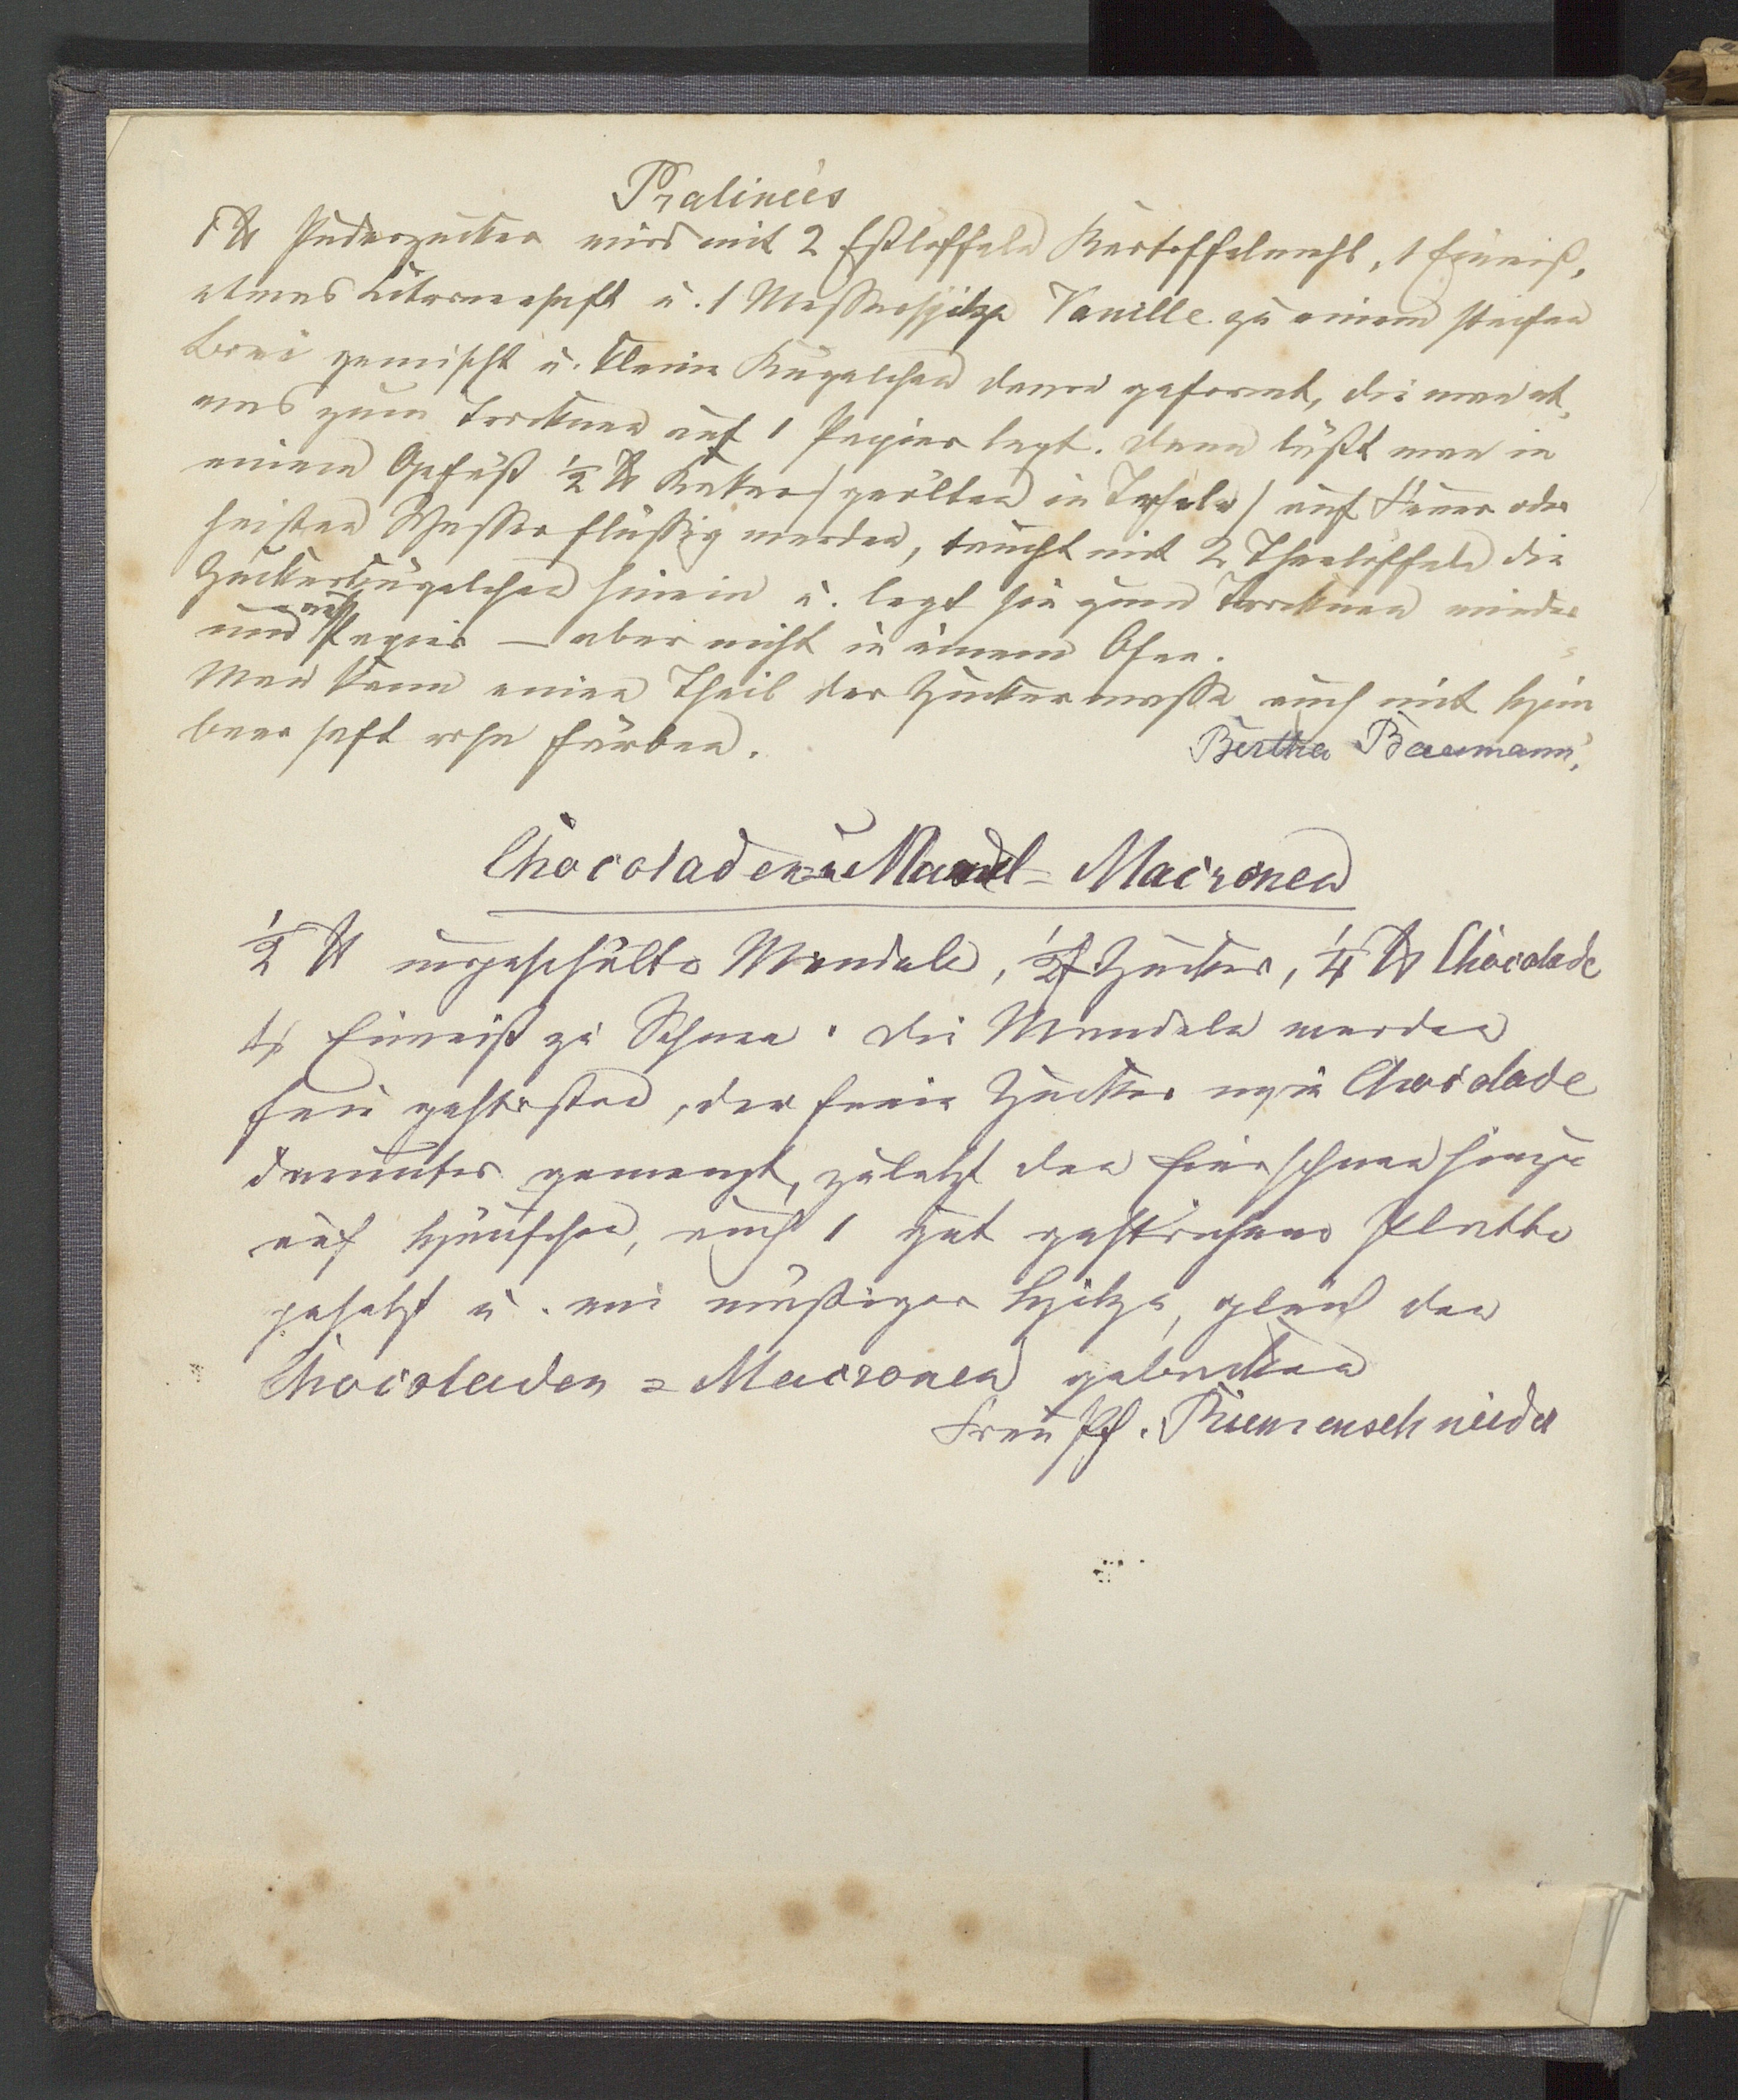 Pralineés
1 ℔ Puderzucker wird mit 2 Eßlöffeln Kartoffelmehl, 1 Eiweiß,
etwas Citronensaft u. 1 Messerspitze Vanille zu einem steifen
Brei gemischt u. kleine Kügelchen davon geformt, die man et
was zum Trocknen auf 1 Papier legt. Dann läßt man in
einem Gefäß ½ ℔ (geölten in Tafeln) auf Feuer oder
heißen Wasser flüßig werden, taucht mit 2 Theelöffeln die
Zuckerkügelchen hinein u. legt sie zum Trocknen wieder
auf Papier — aber nicht in einem Ofen.
Man kann einen Theil der Zuckermasse auch mit Him
beersaft rosa färben.
Bertha Baumann.
Chocoladen u Mandel = Macronen
½ ℔ ungeschälte Mandeln, ½ ℔ Zucker, ¼ ℔ Chocolade
4 Eiweiß zu Schnee. Die Mandeln werden
fein gestoßen, der feine Zucker u Chocolade
darunter gemengt, zuletzt den Eierschnee hinzu
auf Häufchen, auf 1 gut gestrichene Platte
gesetzt u. bei mäßiger Hitze, gleich den
Chocoladen = Macronen gebacken
Frau Pf. Riemenschneider